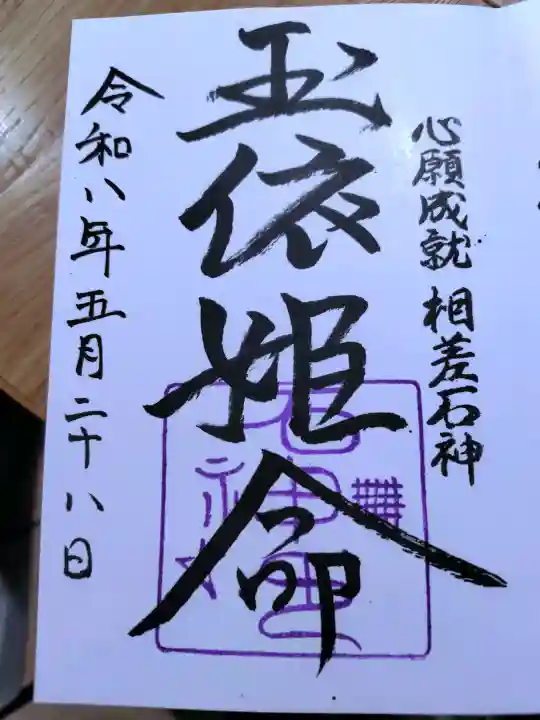 心願成就 相差石神
玉依姫命
令和八年五月二十八日